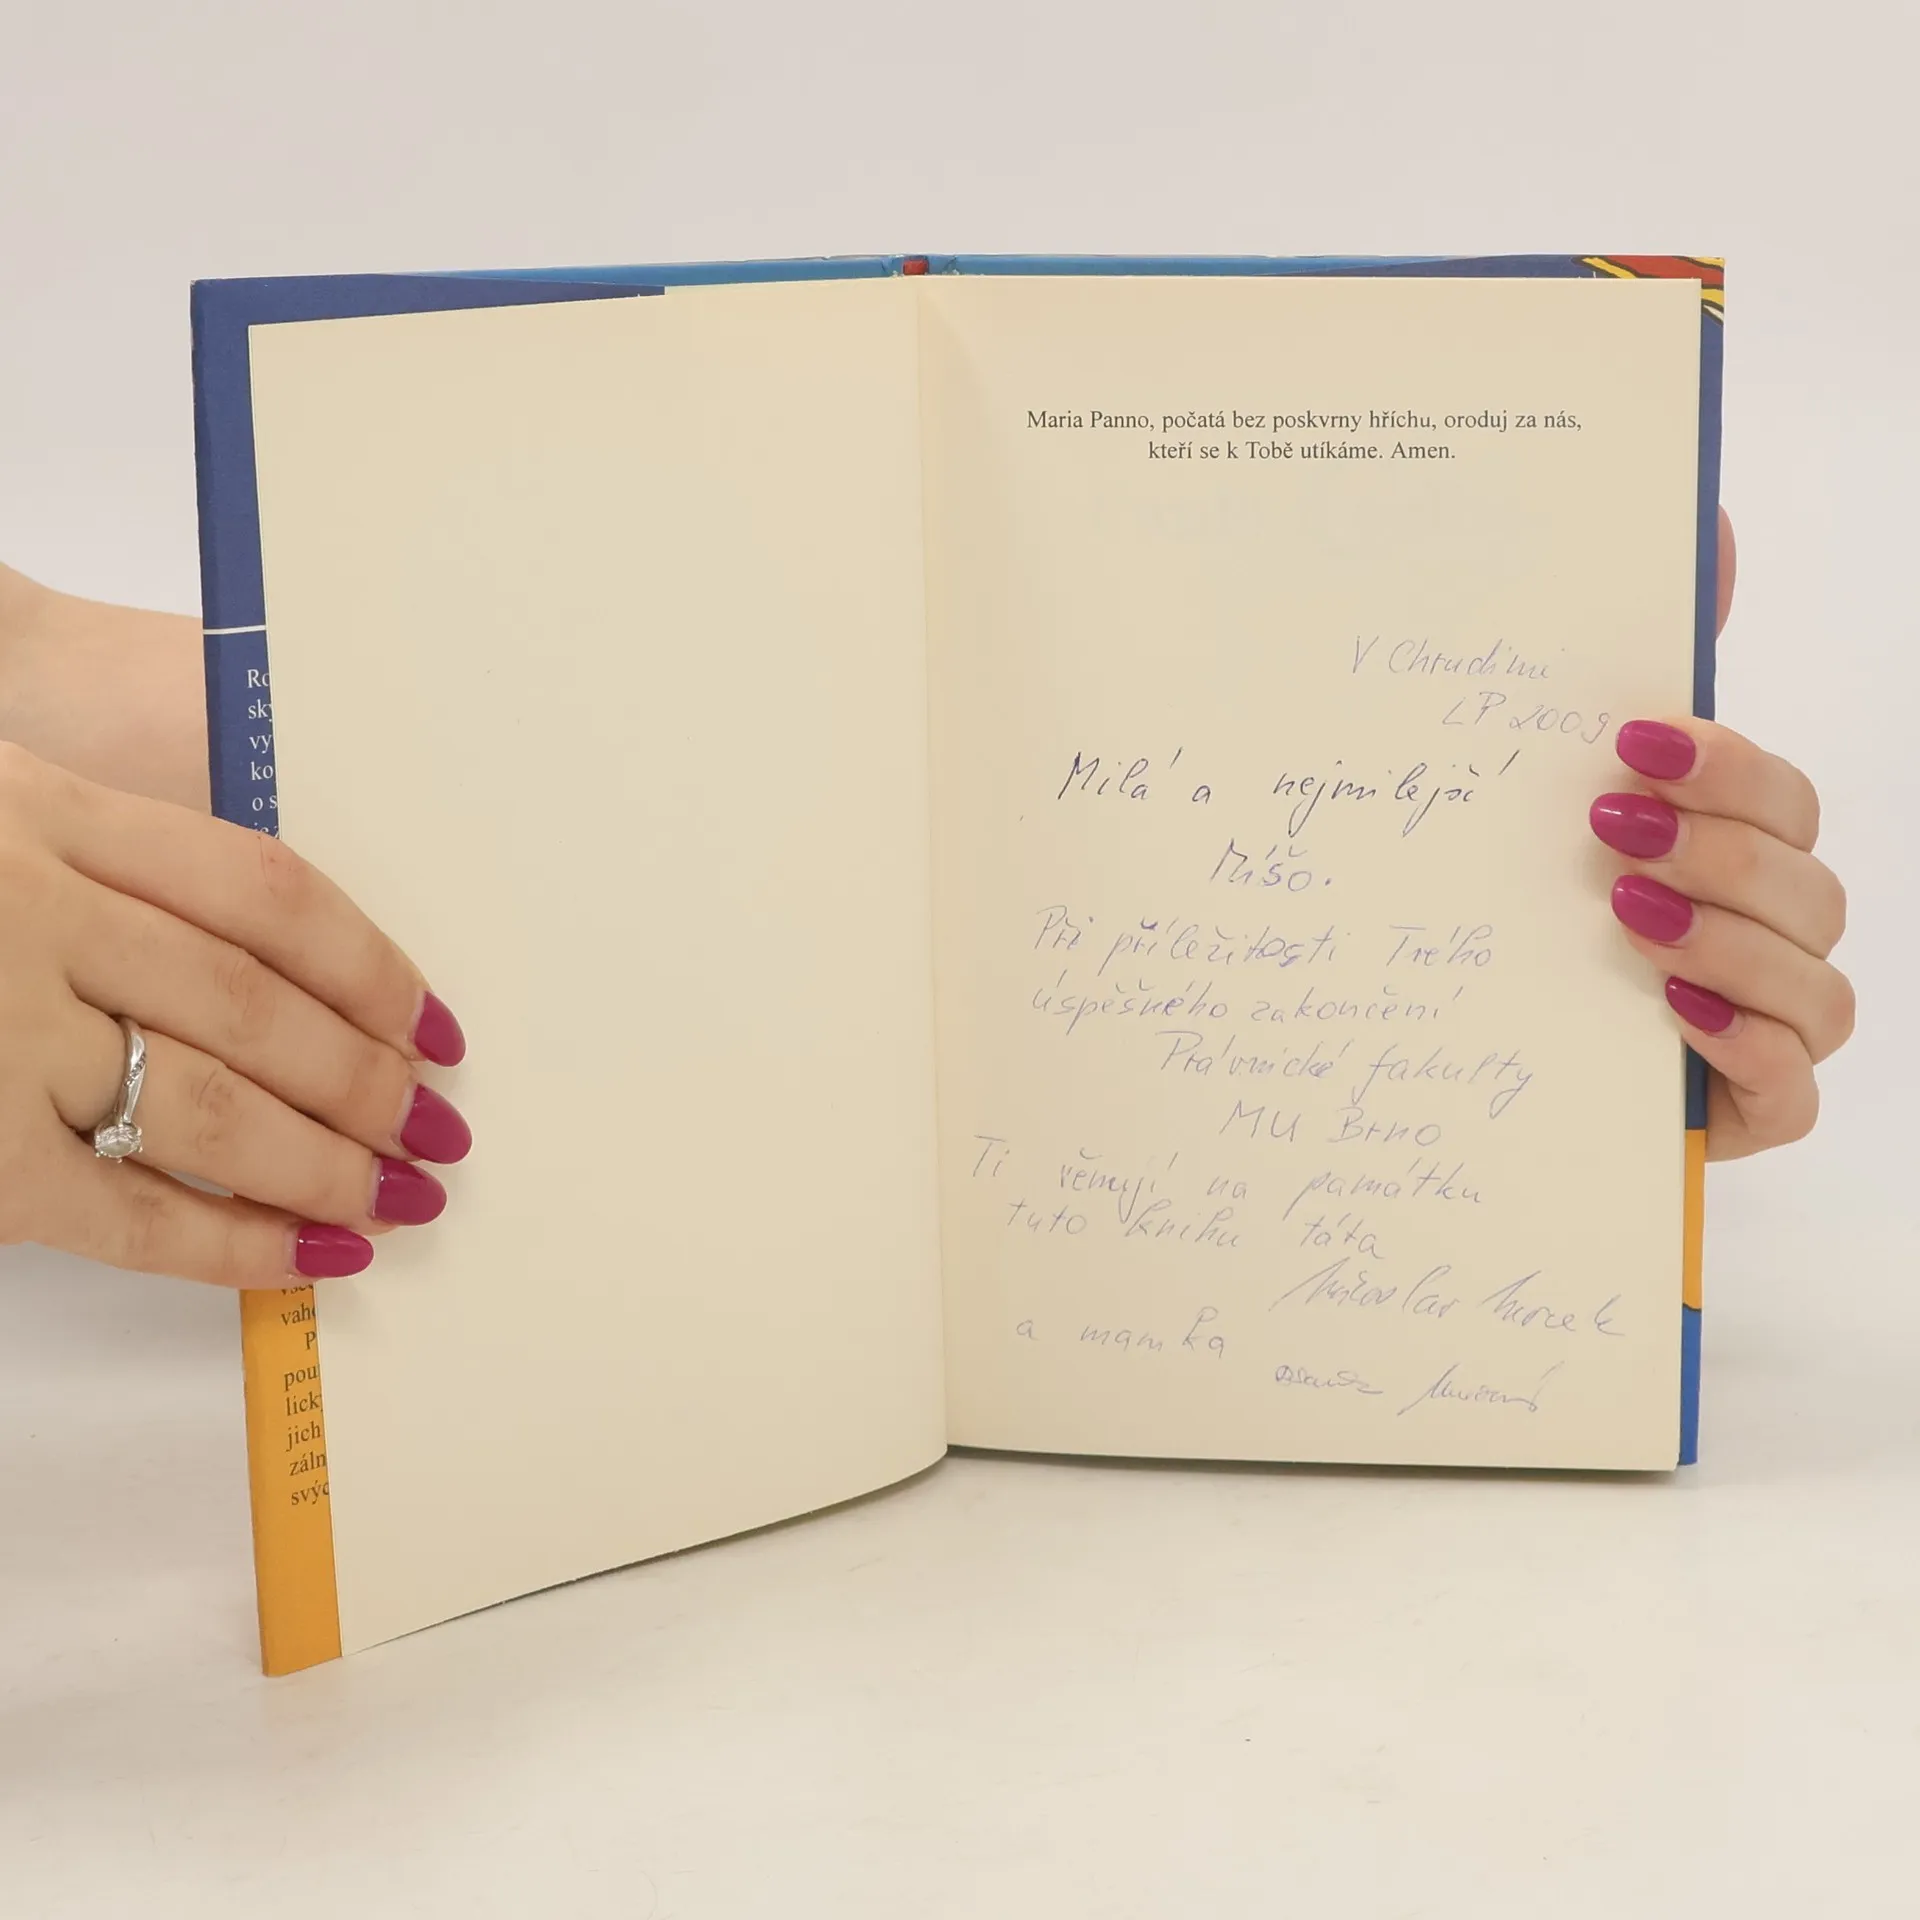 Ro
sk
vy
ko
o s
vah
P
pou
lick
jich
záln
svýc
Maria Panno, počatá bez poskvrny hříchu, oroduj za nás,
kteří se k Tobě utíkáme. Amen.
V Chrudimi
LP 2009
Milá a nejmilejší
Míšo.
Při příležitosti Tvého
úspěšného zakončení
Právnické fakulty
MU Brno
Ti věnují na památku
tuto knihu táta
a mamka